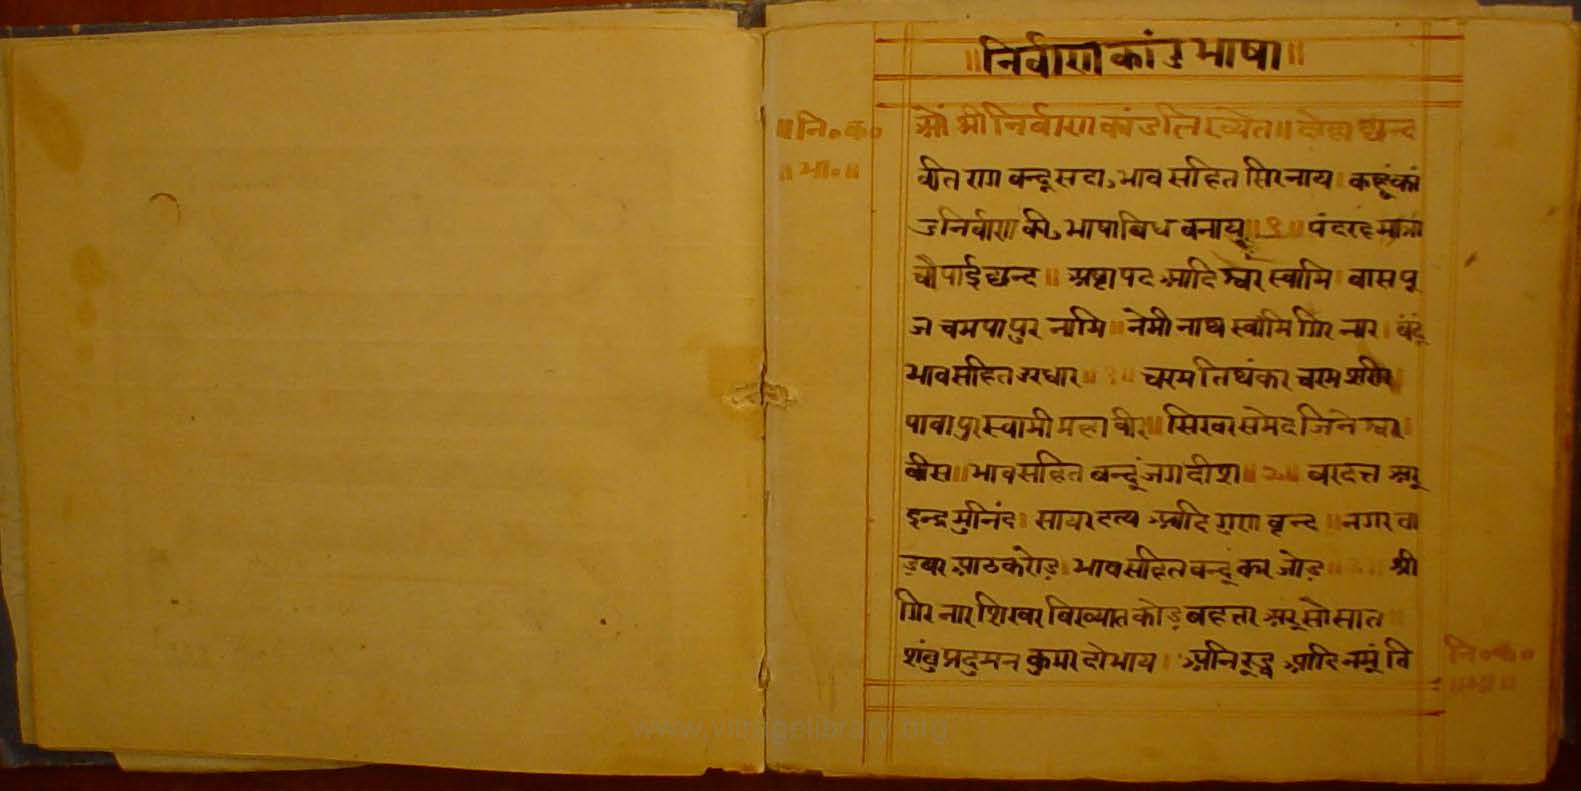 ॥निर्वाणकांडभाषा॥
॥नि॰कां॰
॥भा॰॥
ओं श्रीनिर्वाणकांडलिख्यैत॥ दोहा छन्द
वीतराग वन्दू सदा, भाव सहित सिरनाय। कहूंकां
डनिर्वाण की, भाषा विध बनाय॥१॥ पंदरह मात्रा
चौपाई छन्द॥ अष्टापद आदिश्वर स्वामि। वासपू
ज चमपापुर नामि॥ नेमीनाथ स्वामि गिरनार। वंदूं
भाव सहित उरधार॥१॥ चरम तिर्थंकर चरम शरीर।
पावापुर स्वामी महावीर॥ सिखर समेद जिनेश्वर
वीस॥ भाव सहित बन्दूं जगदीश॥२॥ वरदत्त अरू
इन्द्र मुनिंद। सायर दत्य आदि गुण वृन्द॥ नगर ता
ड़बर आठ करोड़। भाव सहित वन्दूं कर जोड़॥३॥ श्री
गिरनार शिखर विख्यात कोड़ बहत्तर अरू सो सात॥
शंवु प्रदुमन कुमर दो भाय। अनिरूद्ध आदि नमूं ति
नि॰कां॰
॥भा॥
www.vitragelibrary.org